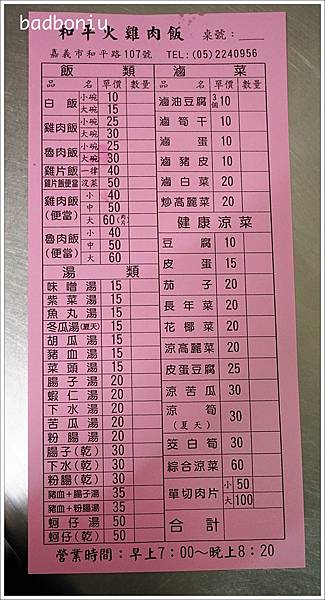 badboniu
和平火雞肉飯 桌號：
嘉義市和平路107號 TEL:(05)2240956
飯類
品名 單價 數量
白飯 小碗 10
大碗 15
雞肉飯 小碗 25
大碗 30
魯肉飯 小碗 25
大碗 30
雞片飯 一律 40
雞片飯便當 沒菜 50
雞肉飯(便當) 小 40
中 50
大 60
魯肉飯(便當) 小 40
中 50
大 60
湯類
味噌湯 15
紫菜湯 15
魚丸湯 15
冬瓜湯(夏天) 15
胡瓜湯 15
豬血湯 15
菜頭湯 15
腸子湯 20
蝦仁湯 20
下水湯 20
苦瓜湯 20
粉腸湯 20
腸子(乾) 30
下水(乾) 30
粉腸(乾) 30
豬血+腸子湯 35
豬血+粉腸湯 35
蚵仔湯 50
蚵仔(乾) 50
滷菜
品名 單價 數量
滷油豆腐 3個 10
滷筍干 10
滷蛋 10
滷豬皮 10
滷白菜 20
炒高麗菜 20
健康涼菜
豆腐 10
皮蛋 15
茄子 20
長年菜 20
花椰菜 20
涼高麗菜 20
皮蛋豆腐 25
涼苦瓜 30
涼筍(夏天) 30
筊白筍 30
綜合涼菜 60
單切肉片 小 50
大 100
合計
營業時間：早上7：00～晚上8：20